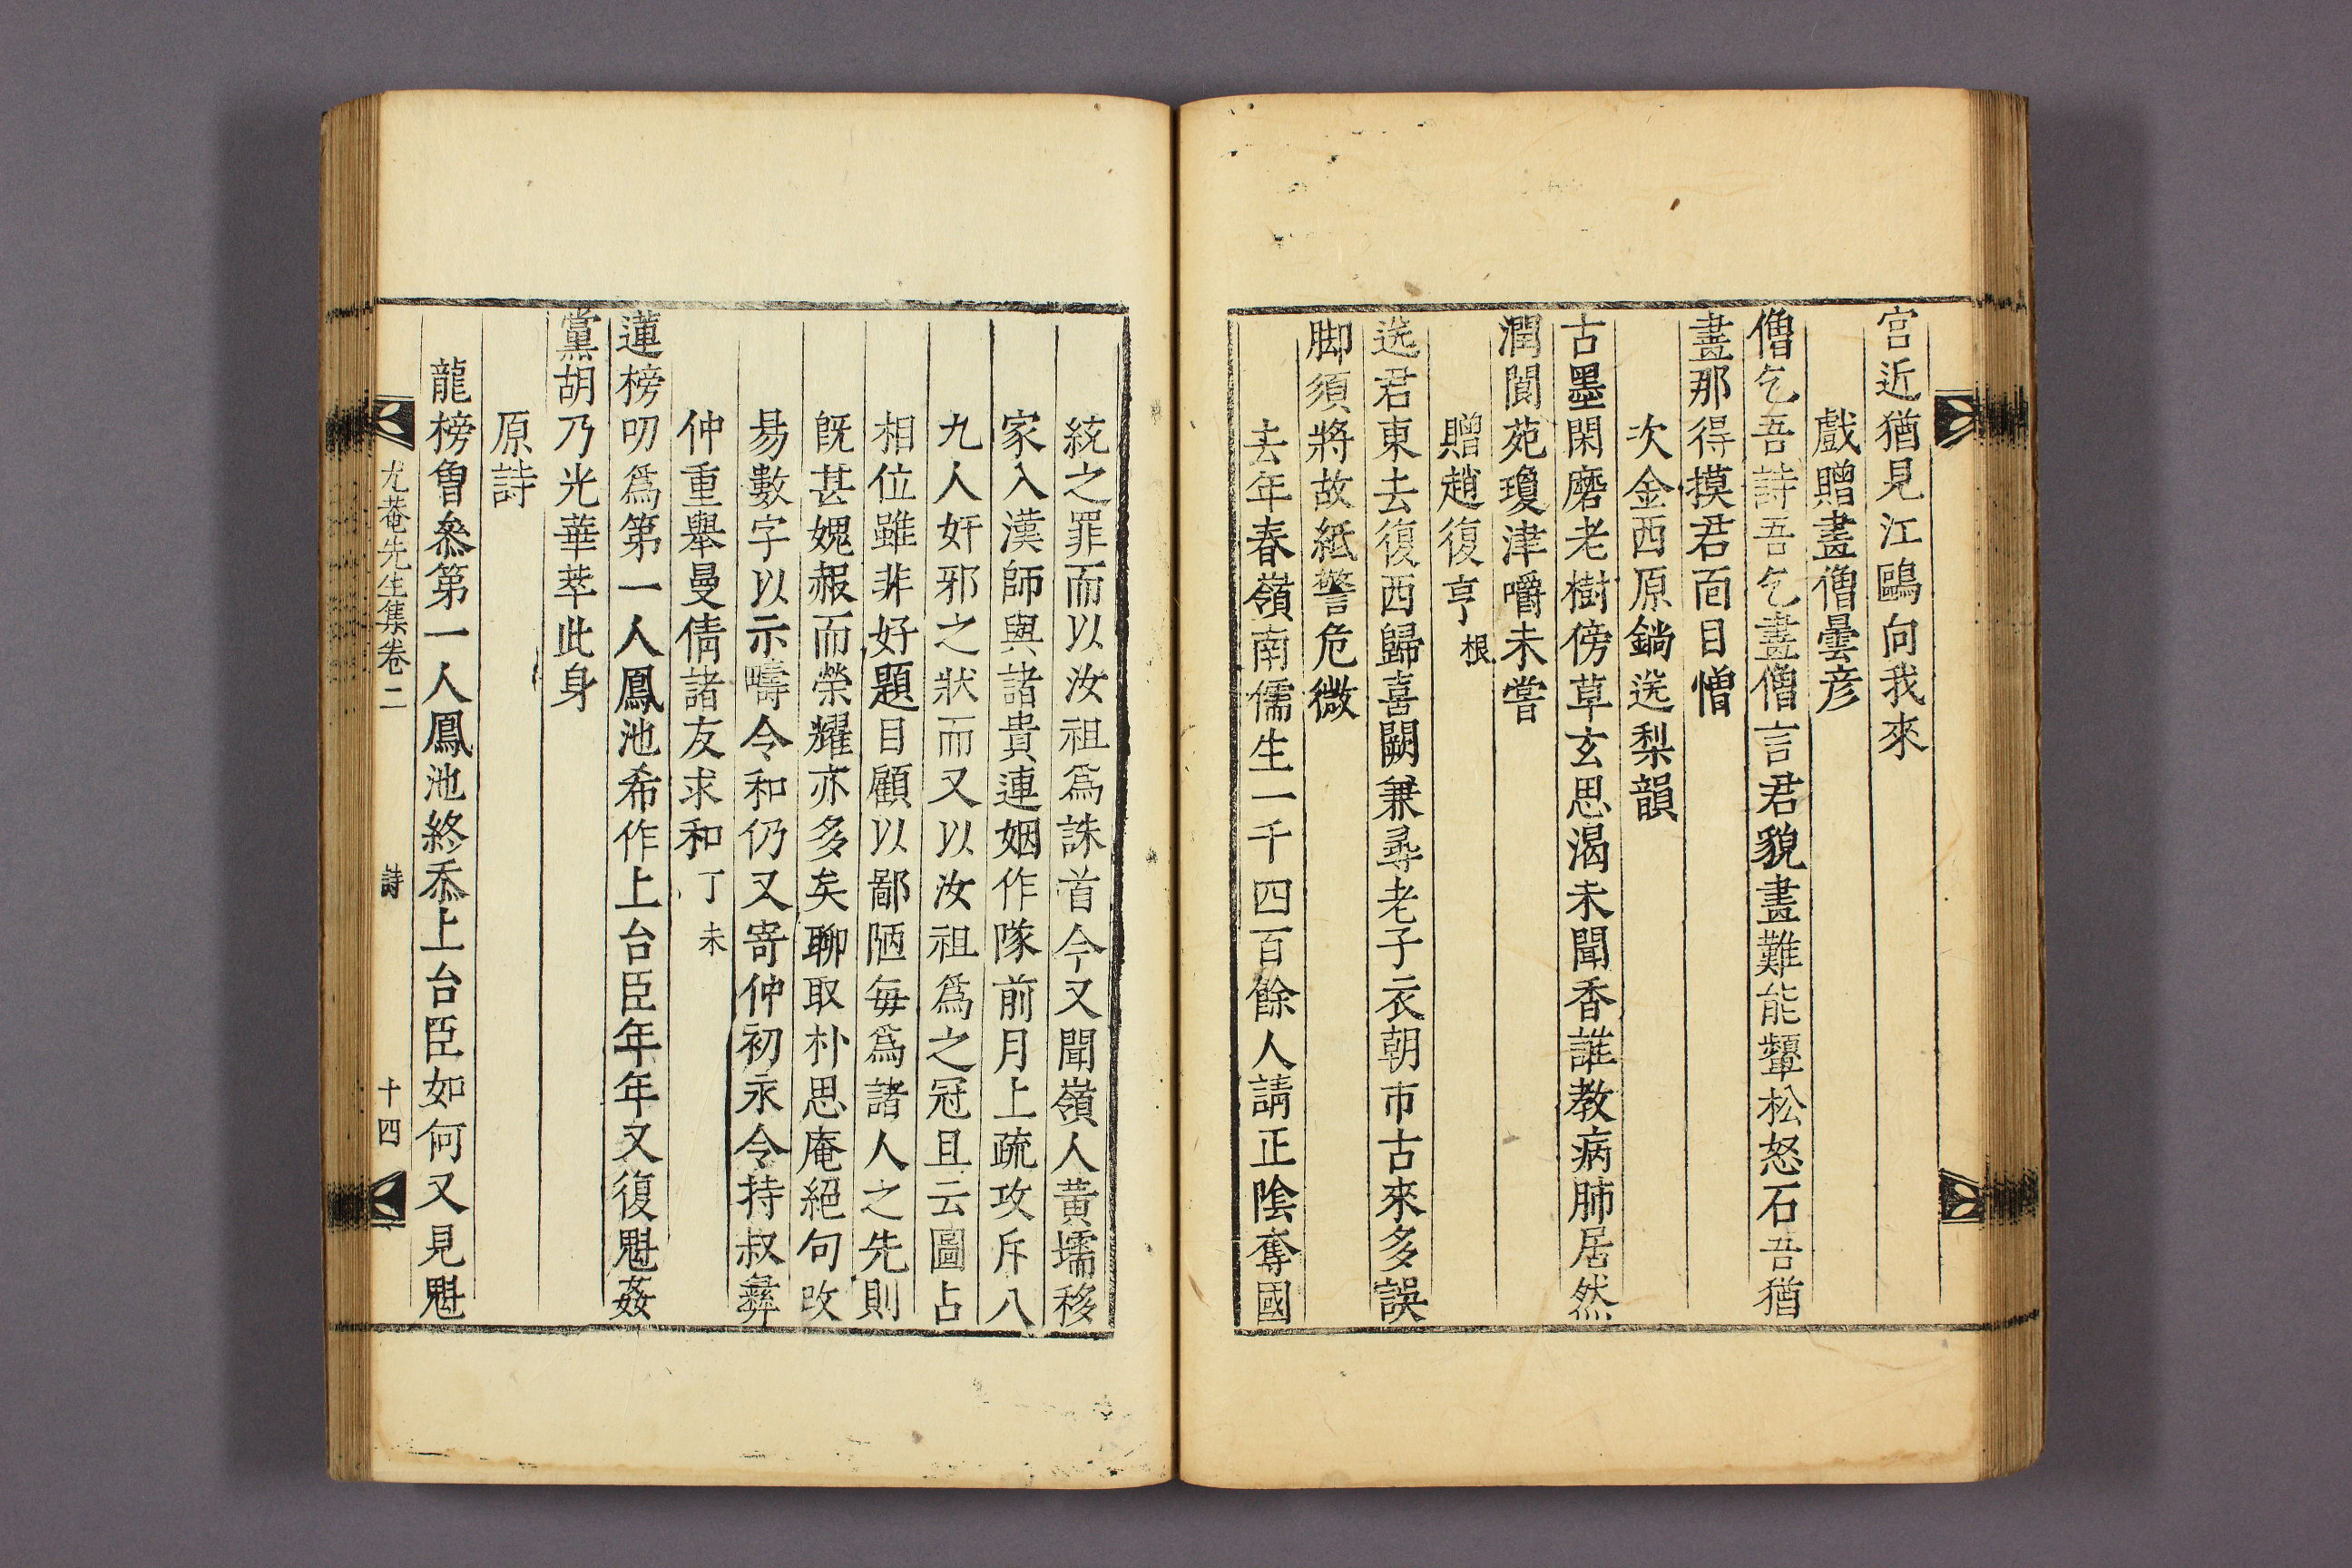 宫近猶見江鷗向我來
戲贈畫僧曇彦
僧乞吾詩吾乞畫僧言君貌畫難能顰松怒石吾猶
畫那得摸君面目憎
次金西原鍋送梨韻
古墨閑磨老樹傍草玄思渴未聞香誰教病肺居然
潤閬苑瓊津嚼未嘗
贈趙復亨根
送君東去復西歸喜闕兼尋老子衣朝市古來多誤
脚須將故紙警危微
去年春嶺南儒生一千四百餘人請正陰奪國
統之罪而以汝祖爲誅首今又聞嶺人黃壖移
家入漢師與諸貴連姻作隊前月上疏攻斥八
九人奸邪之狀而又以汝祖爲之冠且云圖占
相位雖非好題目顧以鄙陋每爲諸人之先則
旣甚媿赧而榮耀亦多矣聊取朴思庵絕句改
易數字以示疇令和仍又寄仲初永令持叔彝
仲重舉曼倩諸友求和丁未
蓮榜叨爲第一人鳳池希作上台臣年年又復魁姦
黨胡乃光華萃此身
原詩
龍榜曾叅第一人鳳池終忝上台臣如何又見魁
尤菴先生集卷二 詩 十四